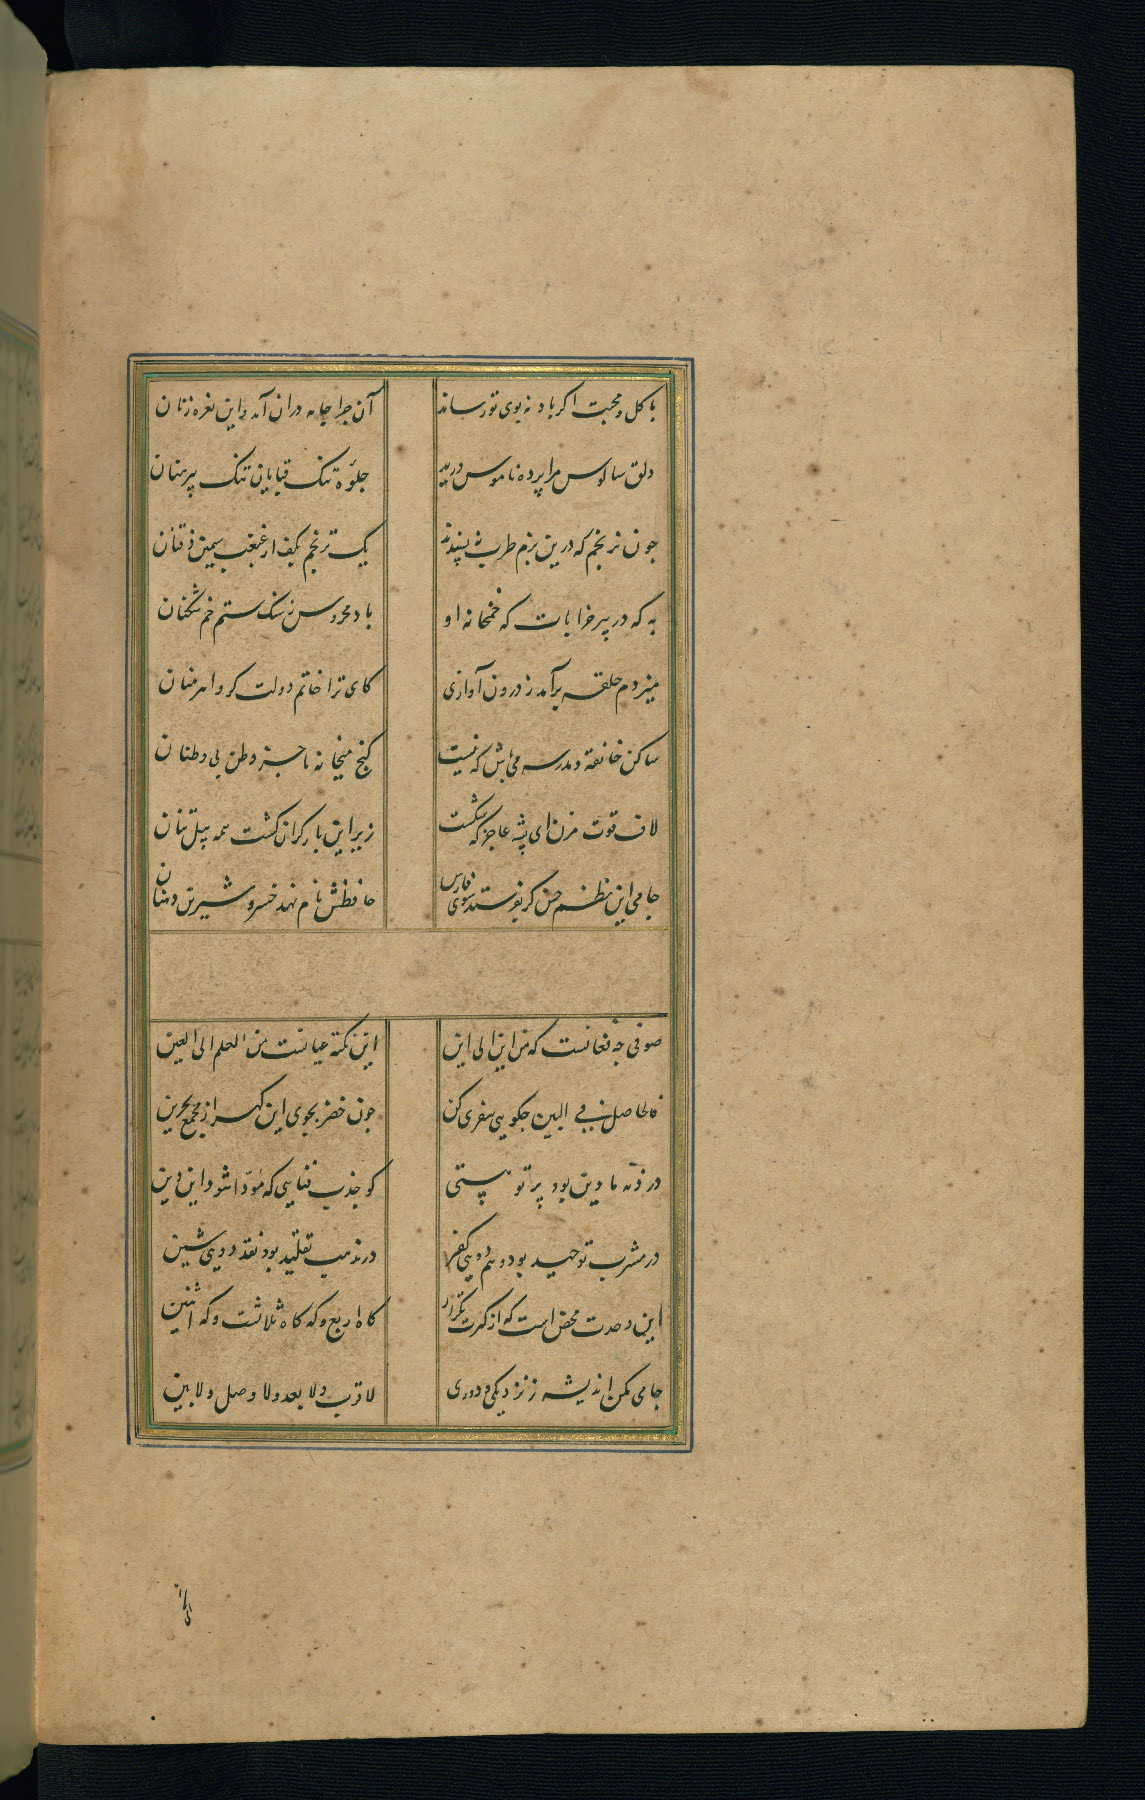 با کل و محبت اکر باد نه بوی تو رساند آن چرا جامه دران آمد و این نعره زنان
دلق سالوس مرا پرده ناموس درید جلوه تنک قبایان تنک پیرهنان
چون نرنجم که درین بزم طرب نه پسندند یک ترنجم بکف از غبغب سیمین ذقنان
به که در پیر خرابات که خمخانه او باد محروس ز سنک ستم خم شکنان
میزدم حلقه برآمد ز درون آوازی کای ترا خاتم دولت کرو اهرمنان
ساکن خانقه و مدرسه می باش که نیست کنج میخانه ما جز وطن بی وطنان
لاف قوت مزن ای پشه عاجز که شکست زیر این بار کران کشت همه پیل تنان
جامی این نظم حسن کر بفرستد سوی فارس حافظش نام نهد خسرو شیرین دهنان
صوفی چه فغانست که من این الی این این نکته عیانست من العلم الی العین
فالحاصل فی البین چکویی سفری کن چون خضر بجوی این کهر از مجمع بحرین
در ذمه ما دین بود پرتو هستی کو جذب فنایی که مودا شود این دین
در مشرب توحید بود وهم دویی کفر در مذهب تقلید بود نقد دویی شین
این وحدت محض است که از کثرت تکرار کاه اربع و که کاه ثلاثست و که اثنین
جامی مکن اندیشه ز نزدیکی و دوری لا قرب ولا بعد ولا وصل ولا بین